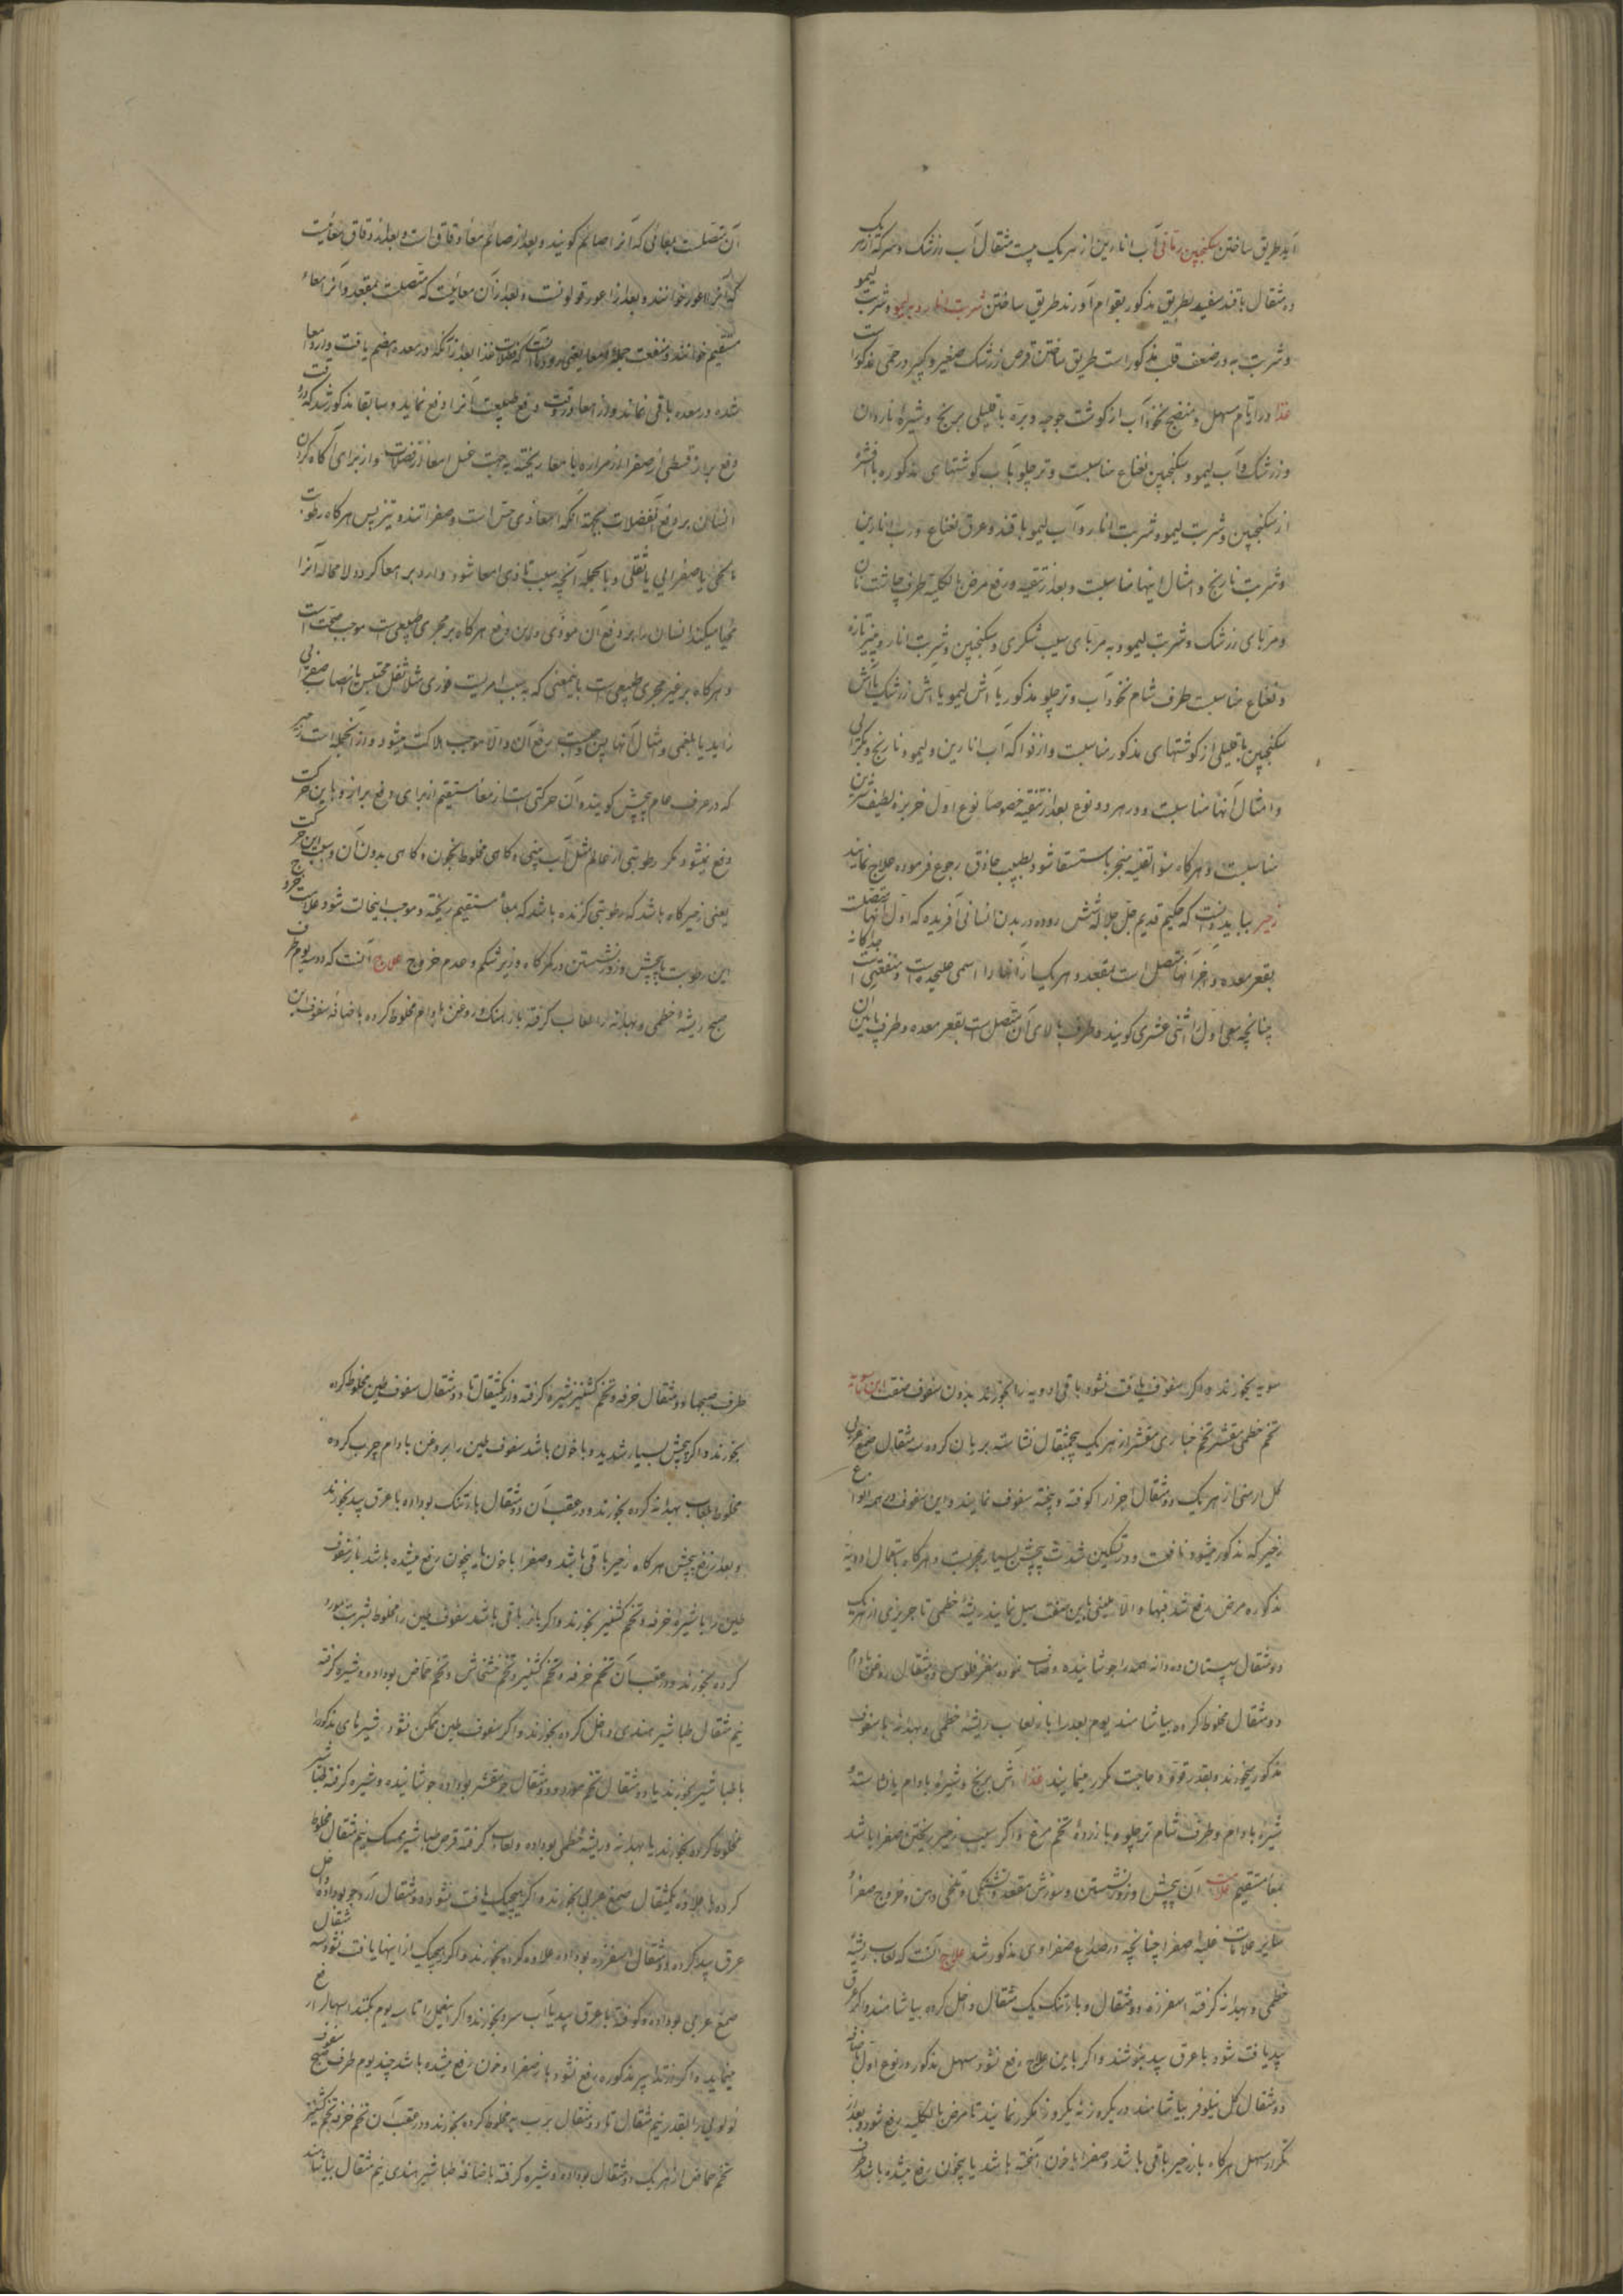 آید طریق ساختن سکنجبین رمانی آب انارین از هر یک بیست مثقال آب زرشک و سرکه از هر یک
ده مثقال با قند سفید بطریق مذکور بقوام آورند طریق ساختن شربت انار و شربت لیمو
و شربت به در ضعف قلب مذکور است طریق ساختن قرص زرشک صغیر و کبیر در حمی مذکور است
غذا در ایام مسهل و منضج نخوداب از گوشت جوجه و بره با قلیلی برنج و شیره ناردان
و زرشک و آب لیمو و سکنجبین نعناع مناسبست و تر چلو با آب گوشتهای مذکوره با افشره
از سکنجبین و شربت لیمو و شربت انار و آب لیمو با قند و عرق نعناع و رب انارین
و شربت نارنج و امثال اینها مناسبست و بعد از تنقیه و رفع مرض بالکلیه طرف چاشت نان
و مربای زرشک و شربت لیمو و به مربای سیب شکری و سکنجبین و شربت انار و پنیر تازه
و نعناع مناسبست طرف شام نخوداب و تر چلو مذکور با آش لیمو یا آش زرشک یا آش
سکنجبین با قلیلی از گوشتهای مذکور مناسبست و از فواکه آب انارین و لیمو و نارنج
و امثال آنها مناسبست و در هر دو نوع بعد از تنقیه خصوصا نوع اول خربزه لطیف شیرین
مناسبست و هرگاه سوء القنیه منجر باستسقا شود بطبیب حاذق رجوع فرموده علاج نمایند
زحیر بباید دانست که حکیم قدیم جل جلاله شش روده در بدن انسانی آفریده که اول آنها متصلست
بقعر معده و آخر آنها متصل است بمقعد و هر یک از آنها را اسمی علیحده است و منفعتی جداگانه است
چنانچه معی اول را اثنی عشری گویند و طرف بالای آن متصل است بقعر معده و طرف پائین آن
آن متصلست بمعائی که آنرا صائم گویند و بعد از صائم معاء دقاق است و بعد از دقاق معائیست
که آنرا اعور خوانند و بعد از اعور قولونست و بعد از آن معائیست که متصلست بمقعد و آنرا معاء
مستقیم خوانند و منفعت جمله امعا یعنی رودها آنست که فضلات غذا بعد از آنکه در معده هضم یافت وارد امعا
شده در معده باقی نماند و از امعا در وقت دفع طبیعت آنرا دفع نماید و سابقا مذکور شد که در وقت
دفع براز قسطی از صفرا از مراره بامعا ریخته به جهت غسل امعا از فضلات و از برای آگاه کردن
انسان بر دفع فضلات بجهة آنکه امعا ذی حس است و صفرا تند و تیز پس هرگاه رطوبت
بلغمی یا صفرایی یا ثقلی و بالجمله آنچه سبب تاذی امعا شود وارد بر امعا گردد لا محاله آنرا
مهیا میکند انسان را بر دفع آن موذی و این دفع هرگاه بر مجری طبیعی است موجب صحت است
و هرگاه بر غیر مجری طبیعی است باینمعنی که به سبب امریست فوری مثل ثقل محتبس یا انصباب صفرایی
زاید یا بلغمی و امثال آنها پس واجبست رفع آن و الا موجب هلاکت میشود و از آنجمله است زحیر
که در عرف عام پیچش گویند و آن حرکتی است از معاء مستقیم از برای دفع براز و باین حرکت
دفع نمیشود مگر رطوبتی از عالم مثل آب بینی و گاهی مخلوط بخون و گاهی بدون آن و سبب این حرکت
یعنی زحیر گاه باشد که رطوبتی گزنده باشد که بمعاء مستقیم ریخته و موجب اینحالت شود علامت خروج
این رطوبت با پیچش و زور نشستن در کمرگاه و زیر شکم و عدم خروج علاج آنست که دو سه یوم طرف
صبح ریشه خطمی و بهدانه را لعاب گرفته بارهنگ و روغن بادام مخلوط کرده باضافه سفوف این
سویه بخورند و اگر سفوف یافت نشود باقی ادویه را بخورند بدون سفوف صفت این سفوف
تخم خطمی مقشر تخم خبازی مقشر از هر یک پنجمثقال نشاسته بریان کرده سه مثقال صمغ عربی
گل ارمنی از هر یک دو مثقال اجزا را کوفته و بیخته سفوف نمایند و این سفوف در همه انواع
زحیر که مذکور میشود نافعست و در تسکین شدت پیچش بسیار مجربست و هرگاه باستعمال ادویه
مذکوره مرض رفع شد فبها و الا تلیینی باین صفت میل نمایند ریشه خطمی تاجریزی از هر یک
دو مثقال سپستان ده دانه همه را جوشانیده و صاف نموده مغز فلوس ده مثقال روغن بادام
دو مثقال مخلوط کرده بیاشامند یوم بعد را باز لعاب ریشه خطمی و بهدانه با سفوف
مذکور بخورند و بقدر قوت و حاجت مکرر مینمایند غذا آش برنج و شیره بادام یا نشاسته
شیره بادام و طرف شام تر چلو با زرده تخم مرغ و اگر سبب زحیر ریختن صفرا باشد
بمعاء مستقیم علامت آن پیچش و زور نشستن و سوزش مقعد و تشنگی و تلخی دهن و خروج صفراء
سایر علامات غلبه صفرا چنانچه در صداع صفراوی مذکور شد علاج آنست که لعاب ریشه
خطمی و بهدانه گرفته اسفرزه دو مثقال و بارتنگ یک مثقال داخل کرده بیاشامند و اگر عرق
بید یافت شود با عرق بید بنوشند و اگر باین علاج رفع نشود مسهل مذکور در نوع اول باضافه
دو مثقال گل نیلوفر بیاشامند و یکروز نه یکروز مکرر نمایند تا مرض بالکلیه رفع شود و بعد از
تکرار مسهل هرگاه باز زحیر باقی باشد و صفرا با خون آمخته باشد یا بیخون رفع میشده باشد طرف
طرف صبحها دو مثقال خرفه و تخم گشنیز شیره گرفته و از یکمثقال تا دو مثقال سفوف طین مخلوط کرده
بخورند و اگر پیچش بسیار شدید و با خون باشد سفوف طین را بروغن بادام چرب کرده
مخلوط بلعاب بهدانه کرده بخورند و در عقب آن دو مثقال بارتنگ بوداده با عرق بید بخورند
و بعد از رفع پیچش هرگاه زحیر باقی باشد و صفرا با خون یا بیخون رفع میشده باشد باز سفوف
طین را با شیره خرفه و تخم گشنیز بخورند و اگر باز باقی باشد سفوف طین را مخلوط بشربت مورد
کرده بخورند و در عقب آن تخم خرفه و تخم گشنیز و تخم خشخاش و تخم حماض بوداده و شیره گرفته
نیم مثقال طباشیر هندی داخل کرده بخورند و اگر سفوف طین ممکن نشود شیرهای مذکور را
با طباشیر بخورند یا دو مثقال تخم مورد و دو مثقال جو مقشر بوداده جوشانیده و شیره گرفته طباشیر
مخلوط کرده بخورند یا بهدانه و ریشه خطمی بوداده و لعاب گرفته قرص طباشیر ممسک نیم مثقال مخلوط
کرده با علاوه یکمثقال صمغ عربی بخورند و اگر هیچیک یافت نشود دو مثقال آرد جو بوداده داخل
عرق بید کرده و دو مثقال اسفرزه بوداده علاوه کرده بخورند و اگر هیچیک از اینها یافت نشود سه مثقال
صمغ عربی بوداده و کوفته با عرق بید یا آب سرد بخورند و اگر اینعمل را تا سه یوم بکنند اسهال را رفع
مینماید و اگر تدابیر مذکوره رفع نشود باز صفرا و خون رفع میشده باشد چند یوم طرف صبح سفوف
لولویی را بقدر نیم مثقال تا دو مثقال برب به مخلوط کرده بخورند و در عقب آن تخم خرفه تخم گشنیز
تخم حماض از هر یک دو مثقال بوداده و شیره گرفته باضافه طباشیر هندی نیم مثقال بیاشامند